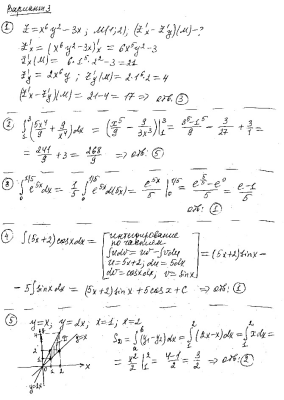 Вариант 3
① Z = x⁶y² - 3x; M(1;2), (Z'x - Z'y)(M) - ?
Z'x = (x⁶y² - 3x)'x = 6x⁵y² - 3
Z'x(M) = 6·1⁵·2² - 3 = 21
Z'y = 2x⁶y; Z'y(M) = 2·1⁶·2 = 4
(Z'x - Z'y)(M) = 21 - 4 = 17 => отв: ③
② ∫₁³ (5x⁴/9 + 9/x⁴) dx = (x⁵/9 - 9/3x³)|₁³ = 3⁵-1⁵/9 - 3/27 + 3/1 =
= 241/9 + 3 = 268/9 => отв: ⑤
③ ∫₀^1/5 e^5x dx = 1/5 ∫₀^1/5 e^5x d(5x) = e^5x/5 |₀^1/5 = e^5/5 - e⁰/5 = e-1/5
отв: ①
④ ∫(5x+2) cosx dx = [интегрирование
по частям
∫udv = uv - ∫vdu
u = 5x+2; du = 5dx
dv = cosxdx, v = sinx] = (5x+2) sinx -
- 5∫sinx dx = (5x+2) sinx + 5cosx + C => отв: ①
⑤ y=x, y=2x; x=1; x=2
y=x
y=2x
= ∫₁² (2x-x)dx = ∫₁² x dx =
= x²/2 |₁² = 4-1/2 = 3/2 => отв: ②